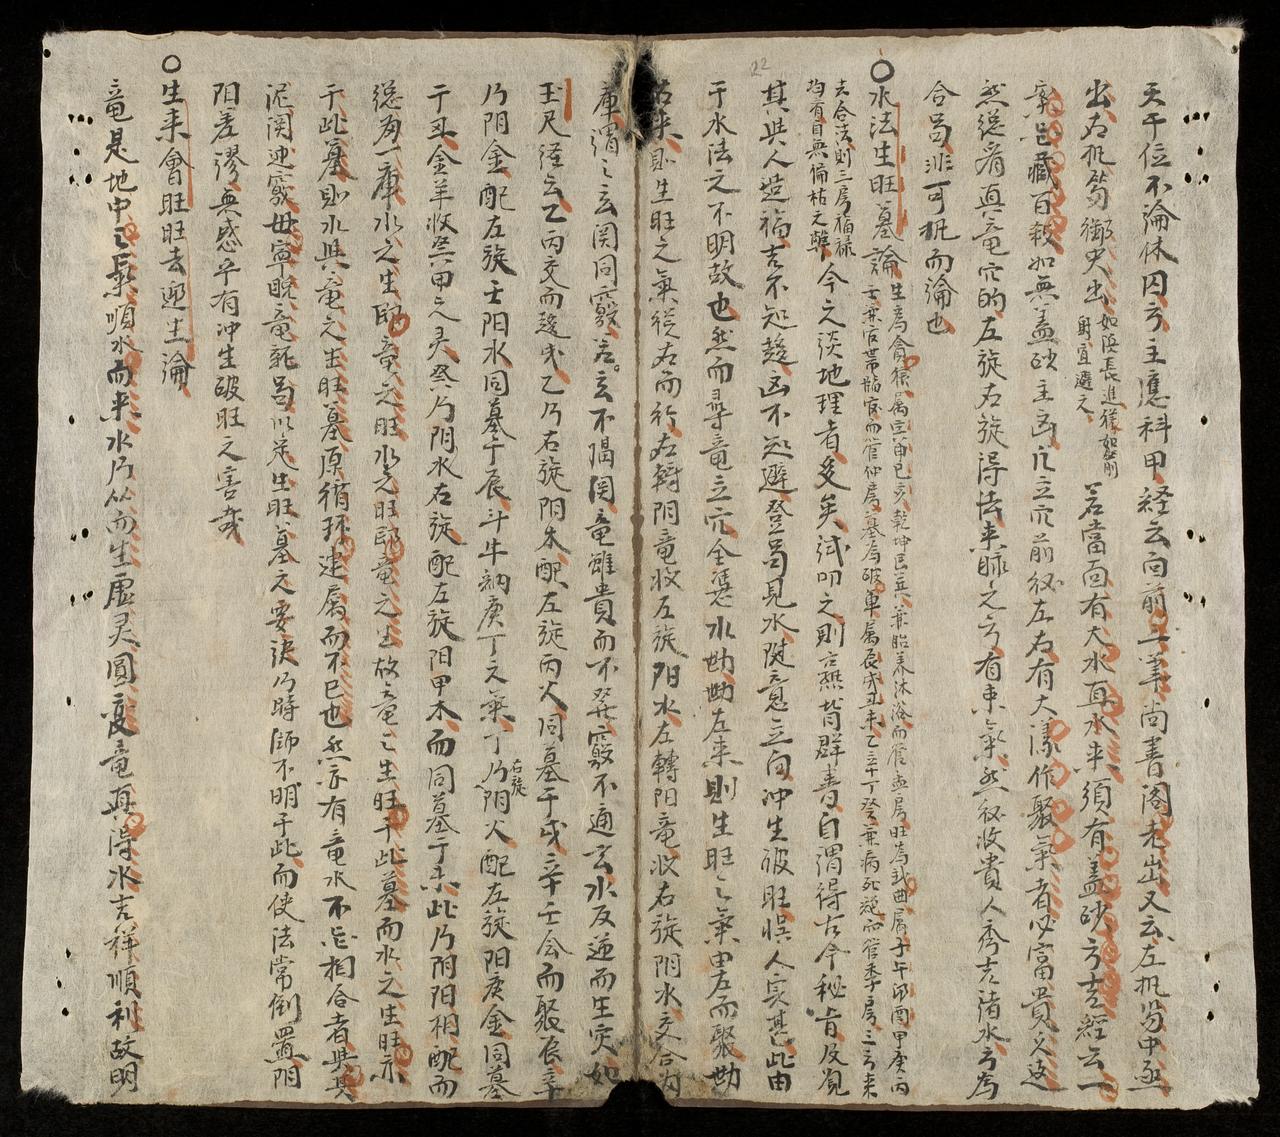 天干位不淪休囚方主應科甲経云向前一筆尚書閣老出又云左砂笏中丞
出右砂笏御史出如陰長進様如前射宜避之若當面有大水直水来須有盖砂方吉経云一
案能藏百殺如無盖砂主凶凡立穴前後左右有大漾作聚氣者必富貴又这
然総看真竜穴的左旋右旋得法来脉之方有束氣然後收貴人秀吉諸水方為
合局非可砂而淪也
〇水法生旺墓論生為貪狼属寅申巳亥乾坤艮巽兼胎養沐浴而管孟房旺為武曲属子午卯酉甲庚丙
壬兼官帯臨官而管仲房墓為破軍属辰戌丑未乙辛丁癸兼病死絶而管季房三方来
去合法則三房福禄均有自無偏枯之弊今之談地理者多矣試叩之則言燕背群書自謂得古今秘旨及覓
其与人造福吉不知趨凶不知避登局見水陡意立向冲生破旺悞人実甚此由
于水法之不明故也然而尋竜立穴全凴水勘勘左来則生旺之氣由左而聚勘
右来則生旺之氣從右而行左轉阴竜收左旋阳水左轉阳竜收右旋阴水交合为
庫謂之玄関同竅若玄不隔関竜雖貴而不發竅不通玄水反逆而生灾如
玉尺経云乙丙交而趨戌乙乃右旋阴木配左旋丙火同墓于戌辛壬会而聚辰辛
乃阴金配左旋壬阳水同墓于辰斗牛納庚丁之氣丁乃右旋阴火配左旋阳庚金同墓
于丑金羊收癸甲之灵癸乃阴水右旋配左旋阳甲木而同墓于未此乃阴阳相配而
総為一庫水之生即竜之旺水之旺即竜之生故竜之生旺于此墓而水之生旺亦
于此墓則水与竜之生旺墓原循环連属而不已也然亦有竜水不能相合者与其
泥関迎竅毋寧脱竜就局以定生旺墓之要訣乃時師不明于此而使法常倒置阴
阳差謬無惑乎有冲生破旺之害哉
〇生来會旺旺去迎生淪
竜是地中之氣順水而来水乃从而生虚灵圓変竜真淂水吉祥順利故明